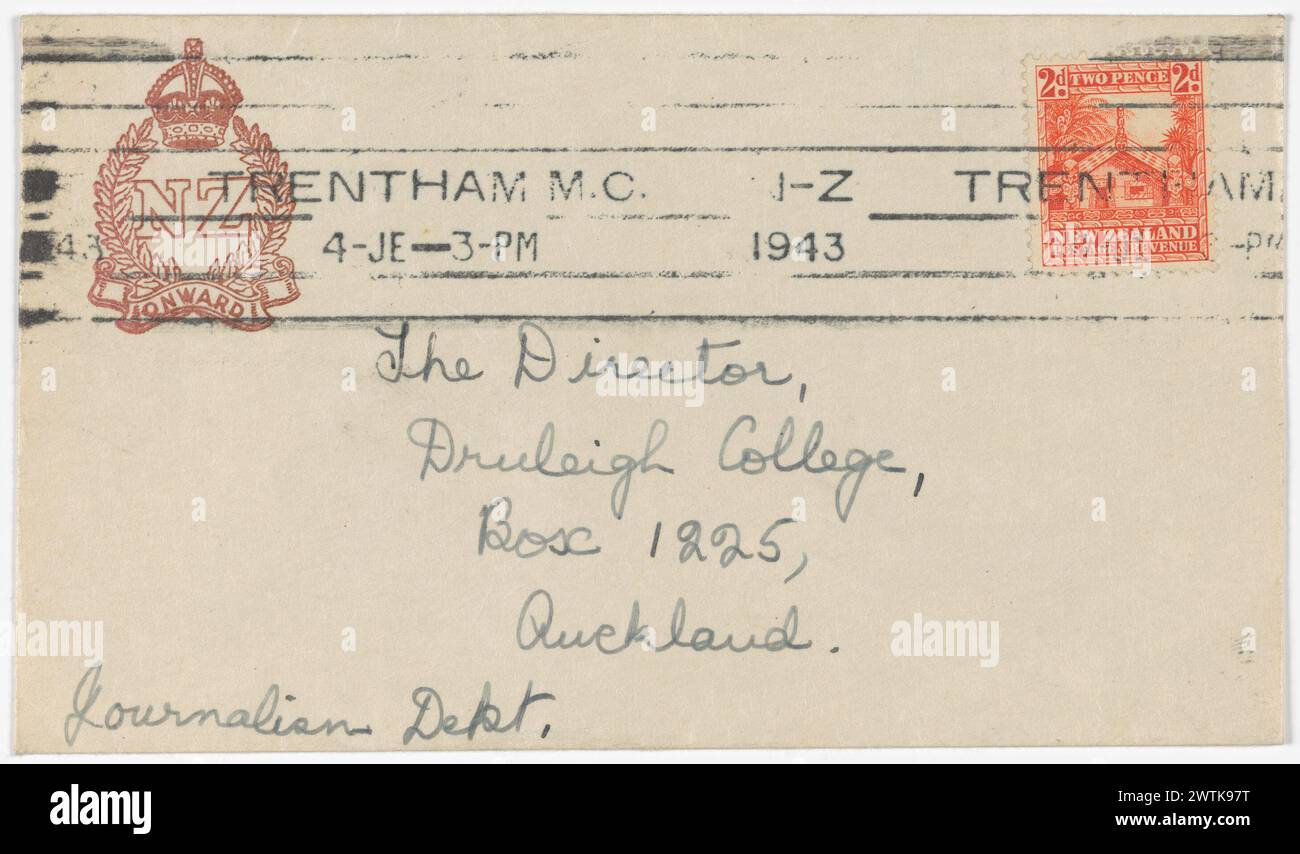 NZ
ONWARD
2d TWO PENCE 2d
NEW ZEALAND
POSTAGE & REVENUE
TRENTHAM M.C. N-Z TRENTHAM
43 4-JE—3-PM 1943 -PM
The Director,
Druleigh College,
Box 1225,
Auckland.
Journalism Dept.
alamy
Image ID: 2WTK97T
www.alamy.com